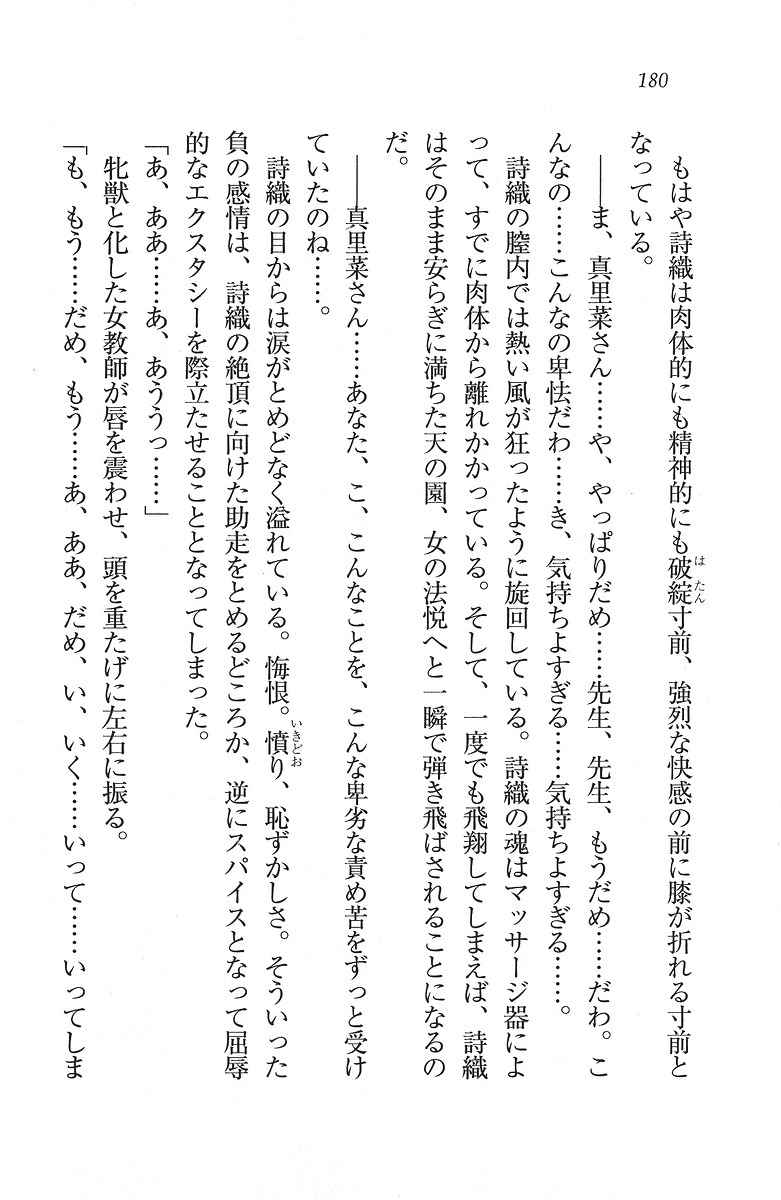 180
もはや詩織は肉体的にも精神的にも破綻寸前、強烈な快感の前に膝が折れる寸前と
はたん
なっている。
――ま、真里菜さん……や、やっぱりだめ……先生、先生、もうだめ……だわ。こ
んなの……こんなの卑怯だわ……き、気持ちよすぎる……気持ちよすぎる……。
詩織の膣内では熱い風が狂ったように旋回している。詩織の魂はマッサージ器によ
って、すでに肉体から離れかかっている。そして、一度でも飛翔してしまえば、詩織
はそのまま安らぎに満ちた天の園、女の法悦へと一瞬で弾き飛ばされることになるの
だ。
――真里菜さん……あなた、こ、こんなことを、こんな卑劣な責め苦をずっと受け
ていたのね……。
詩織の目からは涙がとめどなく溢れている。悔恨。憤り、恥ずかしさ。そういった
いきどお
負の感情は、詩織の絶頂に向けた助走をとめるどころか、逆にスパイスとなって屈辱
的なエクスタシーを際立たせることとなってしまった。
「あ、ああ……あ、あううっ……」
牝獣と化した女教師が唇を震わせ、頭を重たげに左右に振る。
「も、もう……だめ、もう……あ、ああ、だめ、い、いく……いって……いってしま